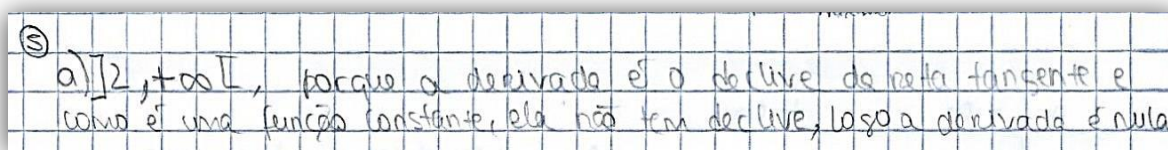 5
a) ]2,+∞[, porque a derivada é o declive da reta tangente e
como é uma função constante, ela não tem declive, logo a derivada é nula